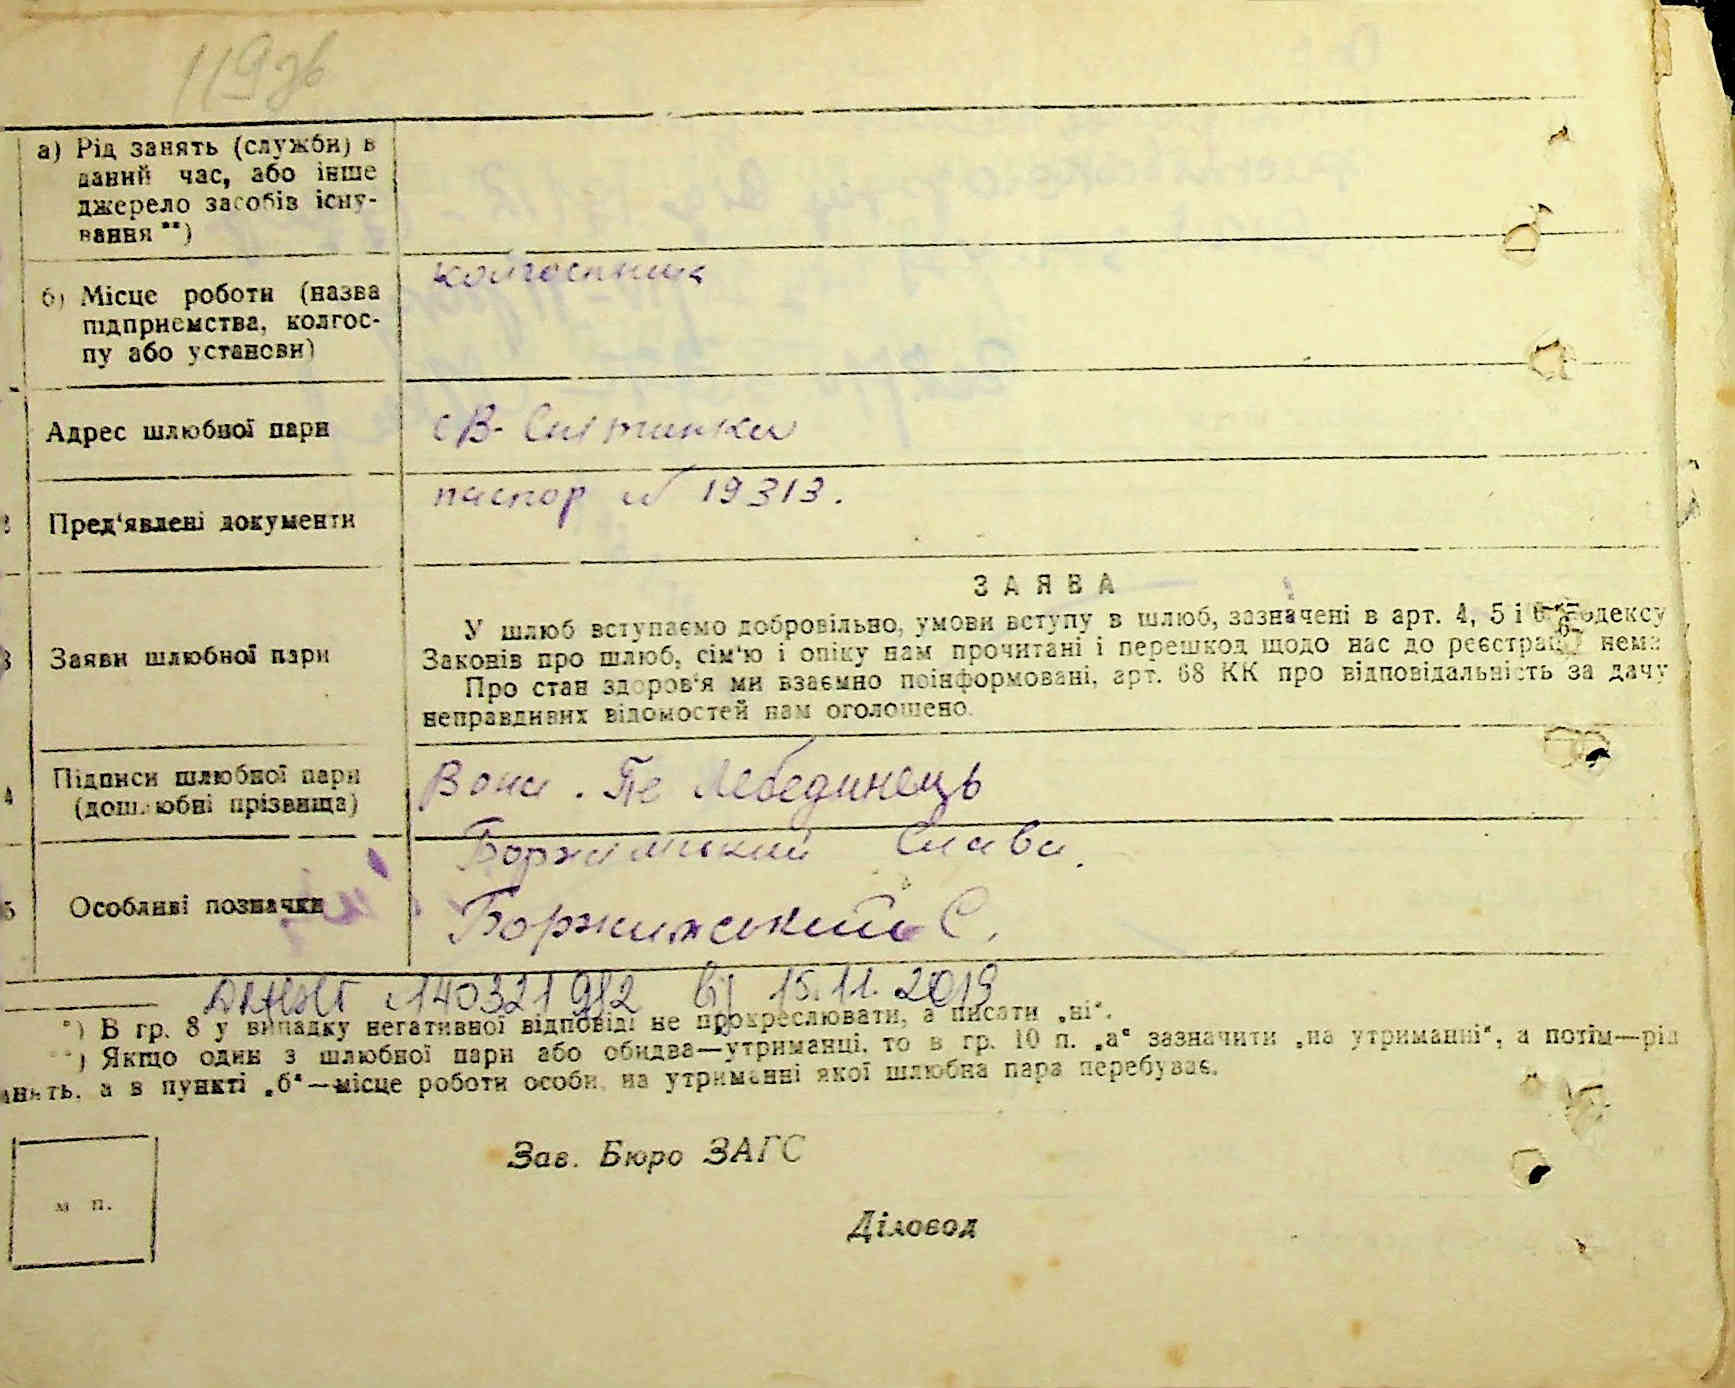 119зв
а) Рід занять (служби) в
даний час, або інше
джерело засобів існу-
вання **)
б) Місце роботи (назва
підприємства, колгос-
пу або установи)
колгоспник
Адрес шлюбної пари
с В- Снітинка
Пред'явлені документи
паспор № 19313.
Заяви шлюбної пари
ЗАЯВА
У шлюб вступаємо добровільно, умови вступу в шлюб, зазначені в арт. 4, 5 і 6 Кодексу
Законів про шлюб, сім'ю і опіку нам прочитані і перешкод щодо нас до реєстрації нема
Про стан здоров'я ми взаємно поінформовані, арт. 68 КК про відповідальність за дачу
неправдивих відомостей нам оголошено.
4
Підписи шлюбної пари
(дошлюбні прізвища)
Вона. Пе Лебединець
Боржимський Слава.
5
Особливі позначки
Боржимський С.
140321982 від 15.11.2019
*) В гр. 8 у випадку негативної відповіді не прокреслювати, а писати „ні".
**) Якщо один з шлюбної пари або обидва—утриманці, то в гр. 10 п. „а" зазначити „на утриманні", а потім—рід
занять, а в пункті „б"—місце роботи особи, на утриманні якої шлюбна пара перебуває.
Зав. Бюро ЗАГС
м п.
Діловод